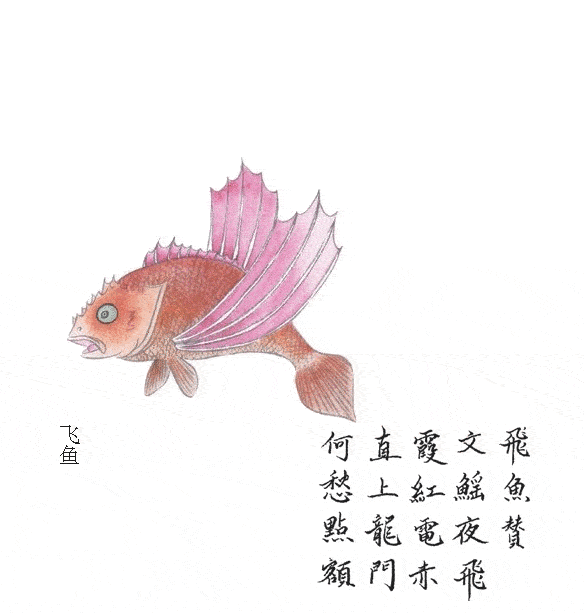 飛魚賛
文鰩夜飛
霞紅電赤
直上龍門
何愁點額
飞鱼